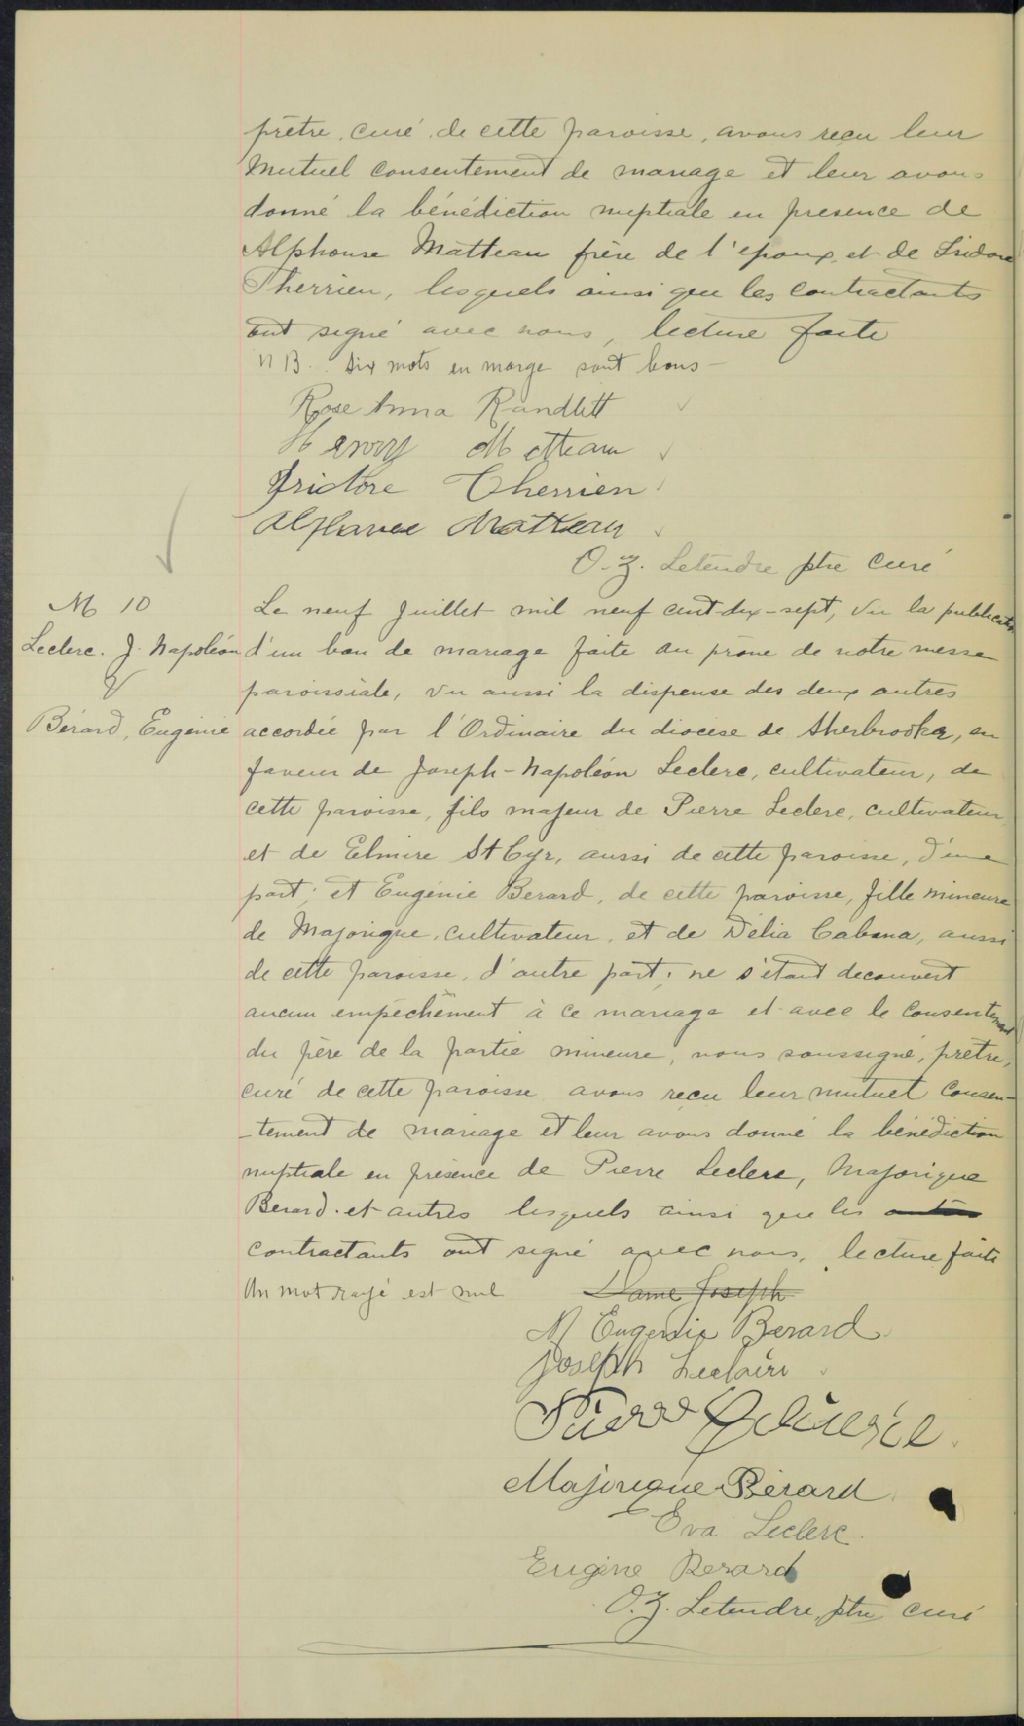 prêtre, curé, de cette paroisse, avons reçu leur
mutuel consentement de mariage et leur avons
donné la bénédiction nuptiale en presence de
Alphonse Matteau frère de l'époux, et de Isidore
Therrien, lesquels ainsi que les contractants
ont signé avec nous, lecture faite
N B. . Six mots en marge sont bons -
Rose Anna Randlett
Henry Matteau
Isidore Therrien
Alphonse Matteau
O. Z. Letendre ptre curé
M 10
Leclerc. J. Napoléon
&
Bérard, Eugénie
Le neuf Juillet mil neuf cent dix-sept, Vu la publication
d'un ban de mariage faite au prône de notre messe
paroissiale, vu aussi la dispense des deux autres
accordée par l'Ordinaire du diocèse de Sherbrooke, en
faveur de Joseph-Napoléon Leclerc, cultivateur, de
cette paroisse, fils majeur de Pierre Leclerc, cultivateur,
et de Elmire St Cyr, aussi de cette paroisse, d'une
part; et Eugénie Berard, de cette paroisse, fille mineure
de Majorique, cultivateur, et de Délia Cabana, aussi
de cette paroisse, d'autre part; ne s'étant decouvert
aucun empêchement à ce mariage et avec le consentement
du père de la partie mineure, nous soussigné, prêtre,
curé de cette paroisse avons reçu leur mutuel consen-
-tement de mariage et leur avons donné la bénédiction
nuptiale en présence de Pierre Leclerc, Majorique
Berard. et autres lesquels ainsi que les
contractants ont signé avec nous, lecture faite
Un mot rayé est nul
Dame Joseph
M Eugenie Berard
Joseph Leclaire
Pierre
Majorique Bérard
Eva Leclerc.
Eugène Berard
O. Z. Letendre, ptre curé